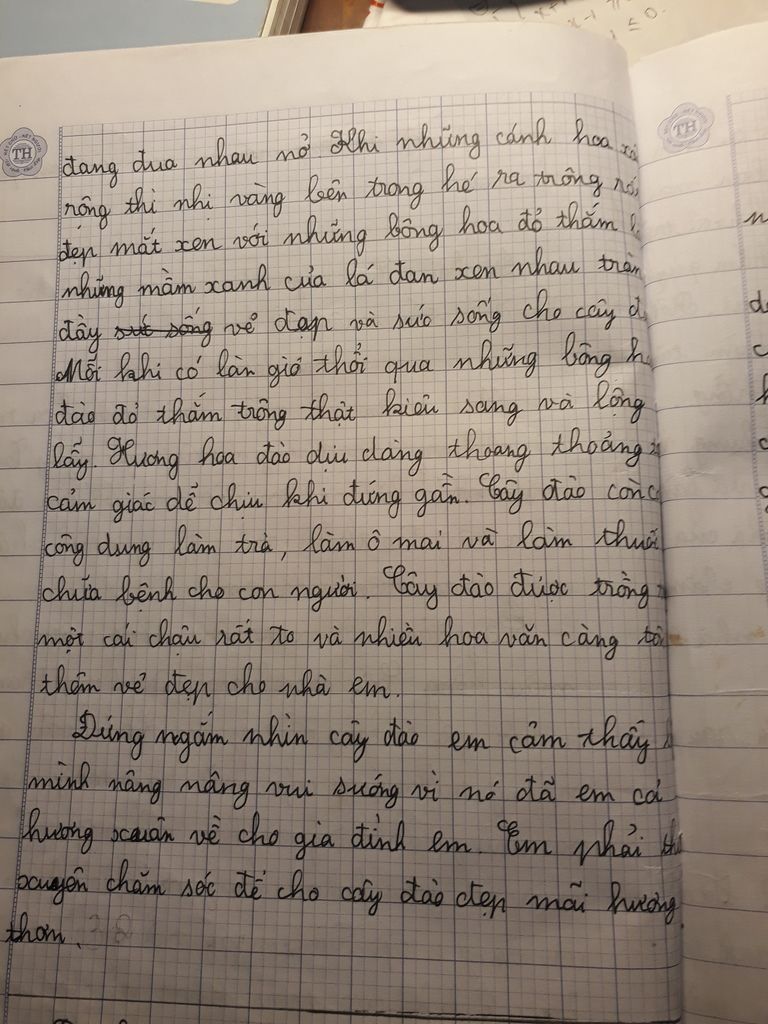 đang đua nhau nở. Khi những cánh hoa
rộng thì nhị vàng bên trong hé ra trông
đẹp mắt xen với những bông hoa đỏ thắm
những mầm xanh của lá đan xen nhau tràn
đầy sức sống vẻ đẹp và sức sống cho cây
Mỗi khi có làn gió thổi qua những bông
đào đỏ thắm trông thật kiêu sang và lộng
lẫy. Hương hoa đào dịu dàng thoang thoảng
cảm giác dể chịu khi đứng gần. Cây đào còn
công dung làm trà, làm ô mai và làm thuố
chữa bệnh cho con người. Cây đào được trồng
một cái chậu rất to và nhiều hoa văn càng
thêm vẻ đẹp cho nhà em.
Đứng ngắm nhìn cây đào em cảm thấy
mình nâng nâng vui sướng vì nó đã em cả
hương xuân về cho gia đình em. Em phải
xuyên chăm sóc để cho cây đào đẹp mãi hương
thơm.
TH
TH